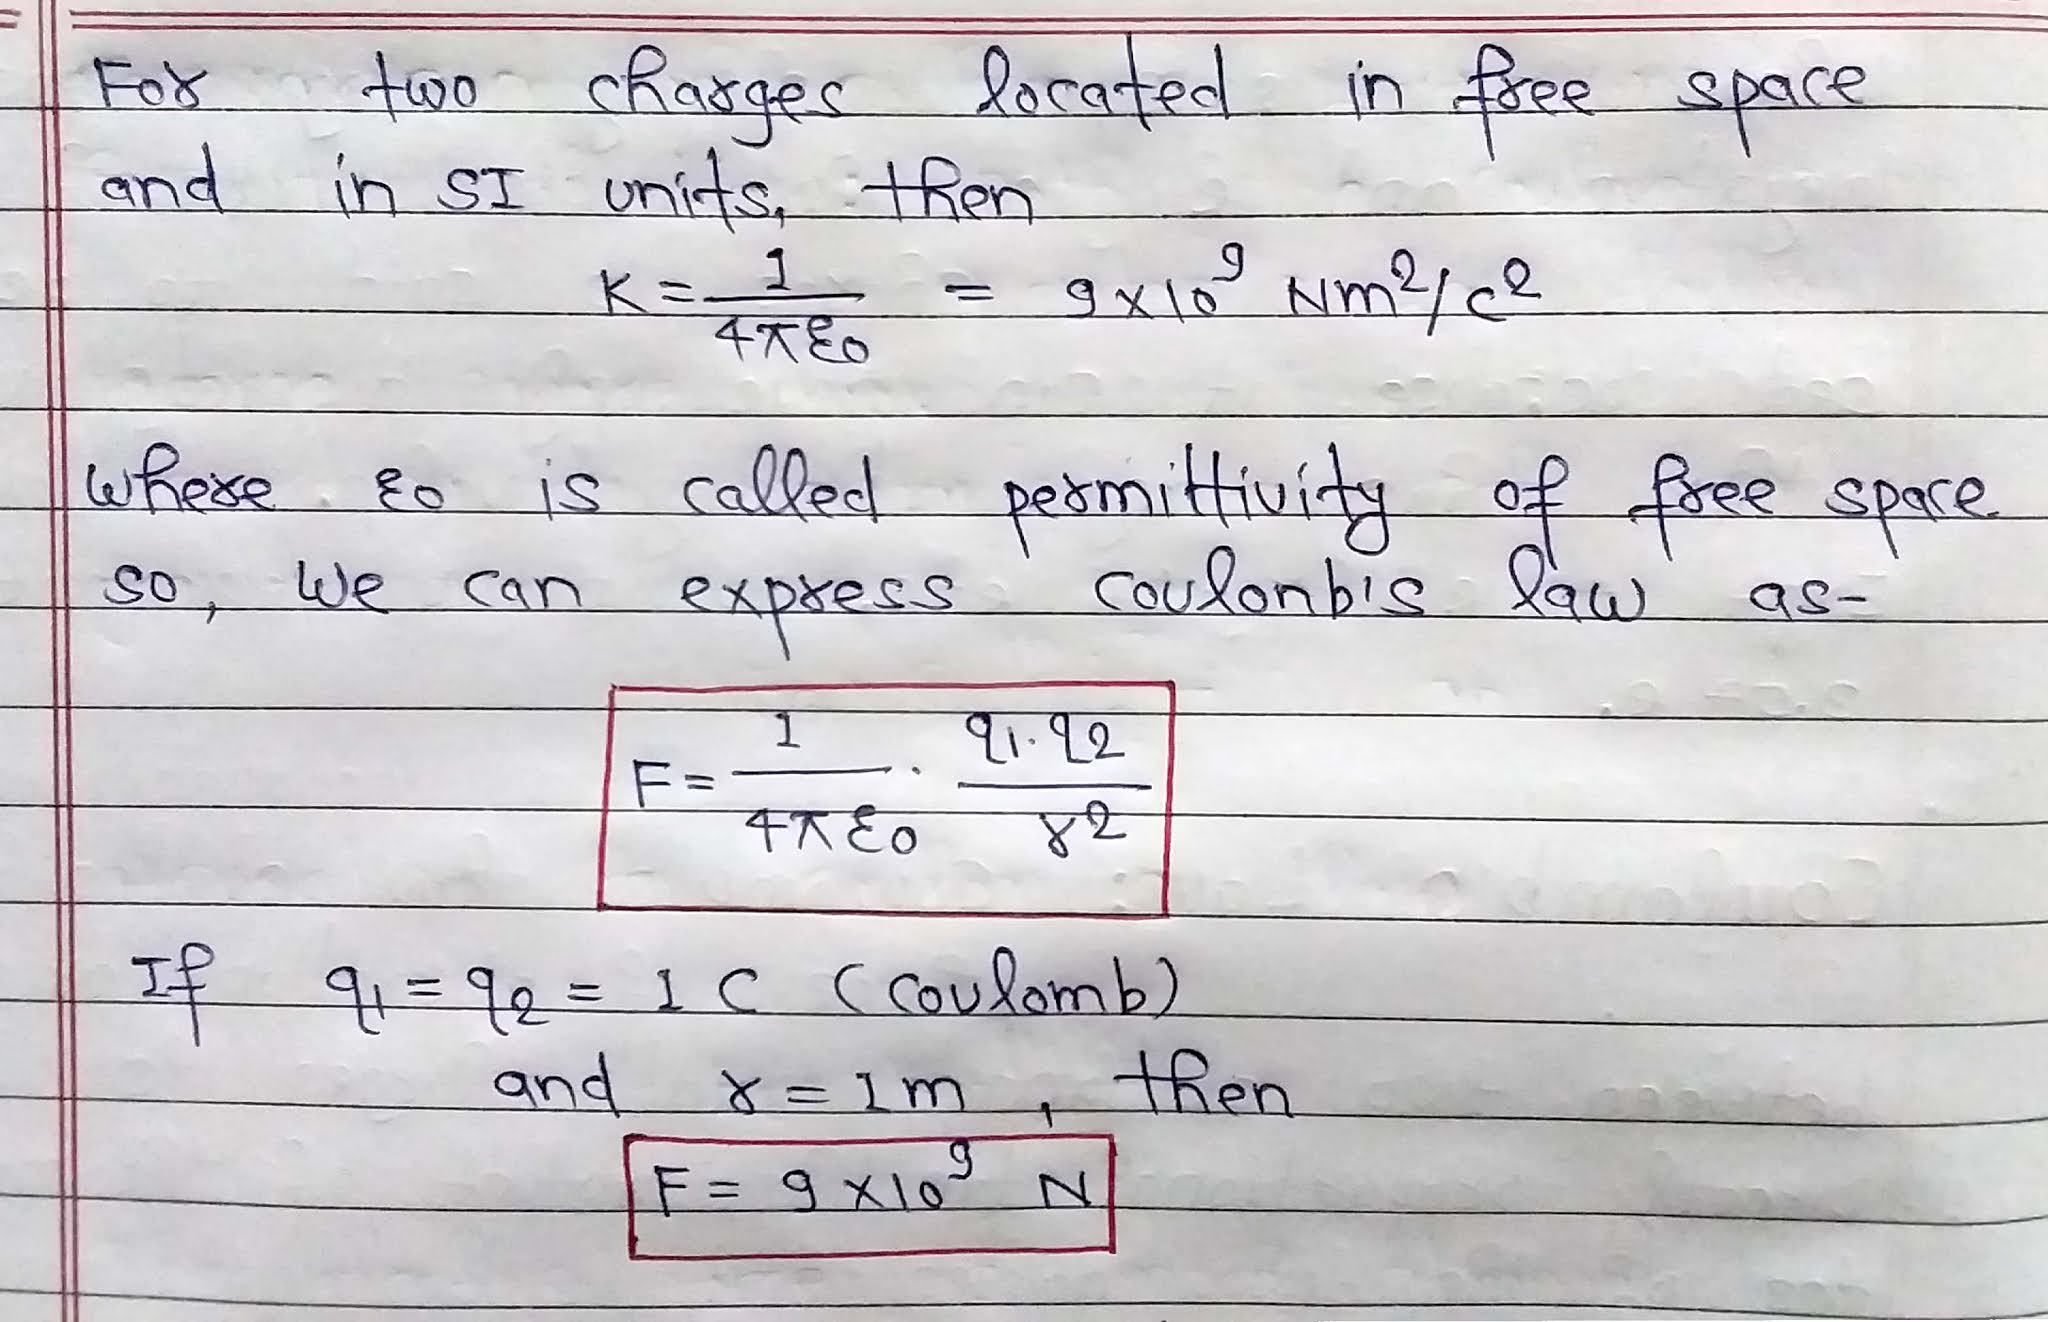 For two charges located in free space
and in SI units, then
K = 1/4πε0 = 9×10^9 Nm²/c²
where ε0 is called permittivity of free space
so, we can express coulonb's law as-
F = 1/4πε0 . q1.q2/r²
If q1 = q2 = 1 C (coulomb)
and r = 1m , then
F = 9×10^9 N